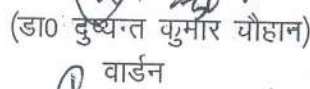 (डा0 दुष्यन्त कुमार चौहान)
वार्डन